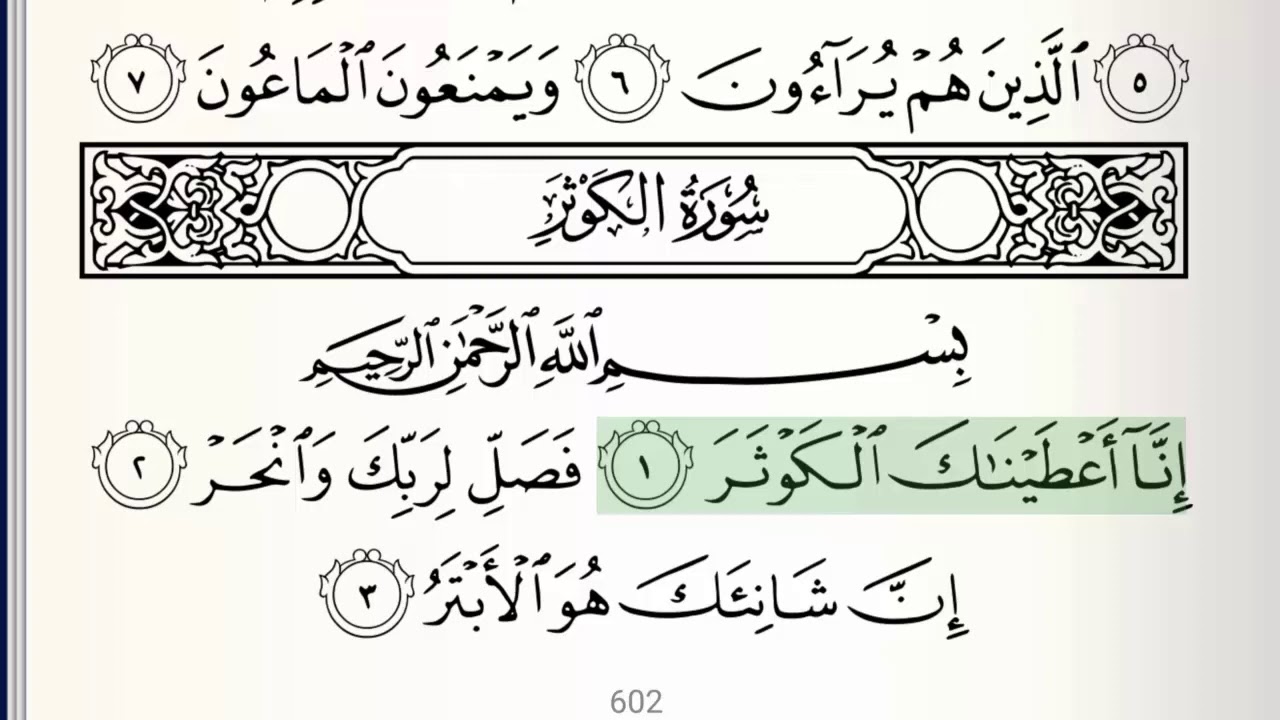 ٥ ٱلَّذِينَ هُمْ يُرَآءُونَ ٦ وَيَمْنَعُونَ ٱلْمَاعُونَ ٧
سُورَةُ الكَوْثَرِ
بِسْمِ ٱللَّهِ ٱلرَّحْمَٰنِ ٱلرَّحِيمِ
إِنَّآ أَعْطَيْنَٰكَ ٱلْكَوْثَرَ ١ فَصَلِّ لِرَبِّكَ وَٱنْحَرْ ٢
إِنَّ شَانِئَكَ هُوَ ٱلْأَبْتَرُ ٣
602